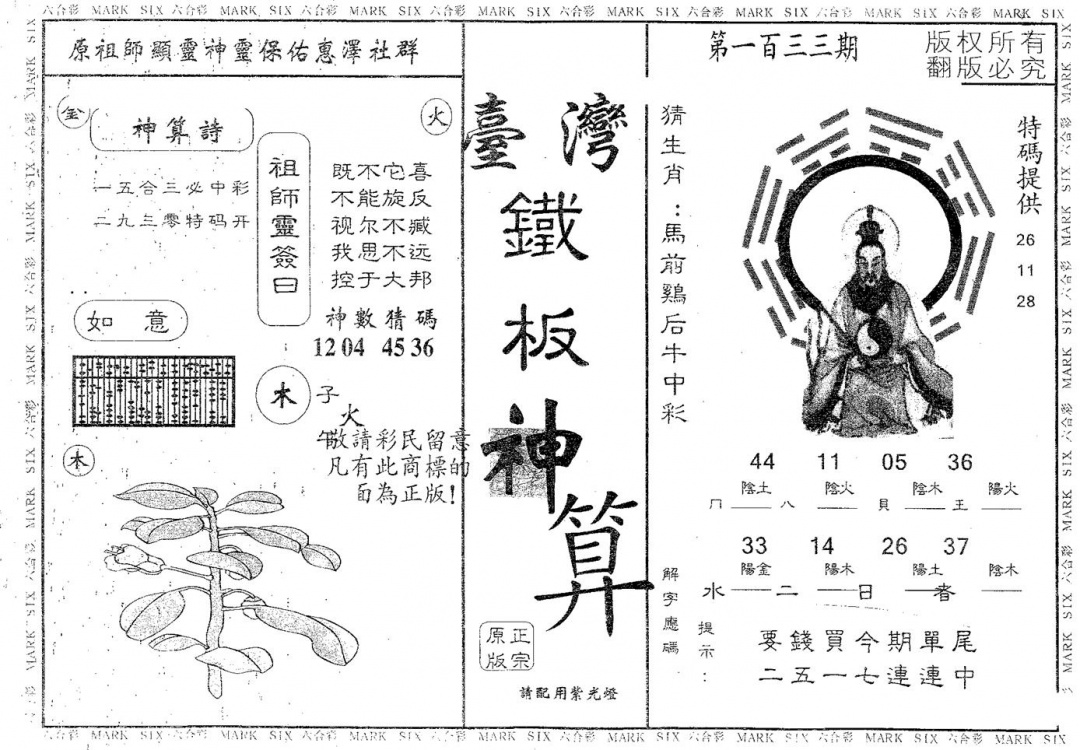 六合彩 MARK SIX 六合彩 MARK SIX 六合彩 MARK SIX 六合彩 MARK SIX 六合彩 MARK SIX 六合彩 MARK SIX 六合彩 MARK SIX 六合彩 MARK SIX
原祖師顯靈神靈保佑惠澤社群
第一百三三期
版权所有
翻版必究
金
神算詩
火
一五合三必中彩
二九三零特码开
祖師靈簽曰
既不它喜
不能旋反
视尔不臧
我思不远
控于大邦
神數猜碼
:
12 04 45 36
如意
木
子
火
午敬請彩民留意
凡有此商標的
面為正版!
木
臺灣
鐵板神算
正宗
原版
請配用紫光燈
猜生肖:馬前鷄后牛中彩
特碼提供
26
11
28
44 11 05 36
陰土 陰火 陰木 陽火
八 貝 王
33 14 26 37
陽金 陽木 陽土 陰木
水 二 日 者
解字應碼
提示:
要錢買今期單尾
二五一七連連中
六合彩 MARK SIX 六合彩 MARK SIX 六合彩 MARK SIX 六合彩 MARK SIX 六合彩 MARK SIX 六合彩 MARK SIX 六合彩 MARK SIX 六合彩 MARK SIX